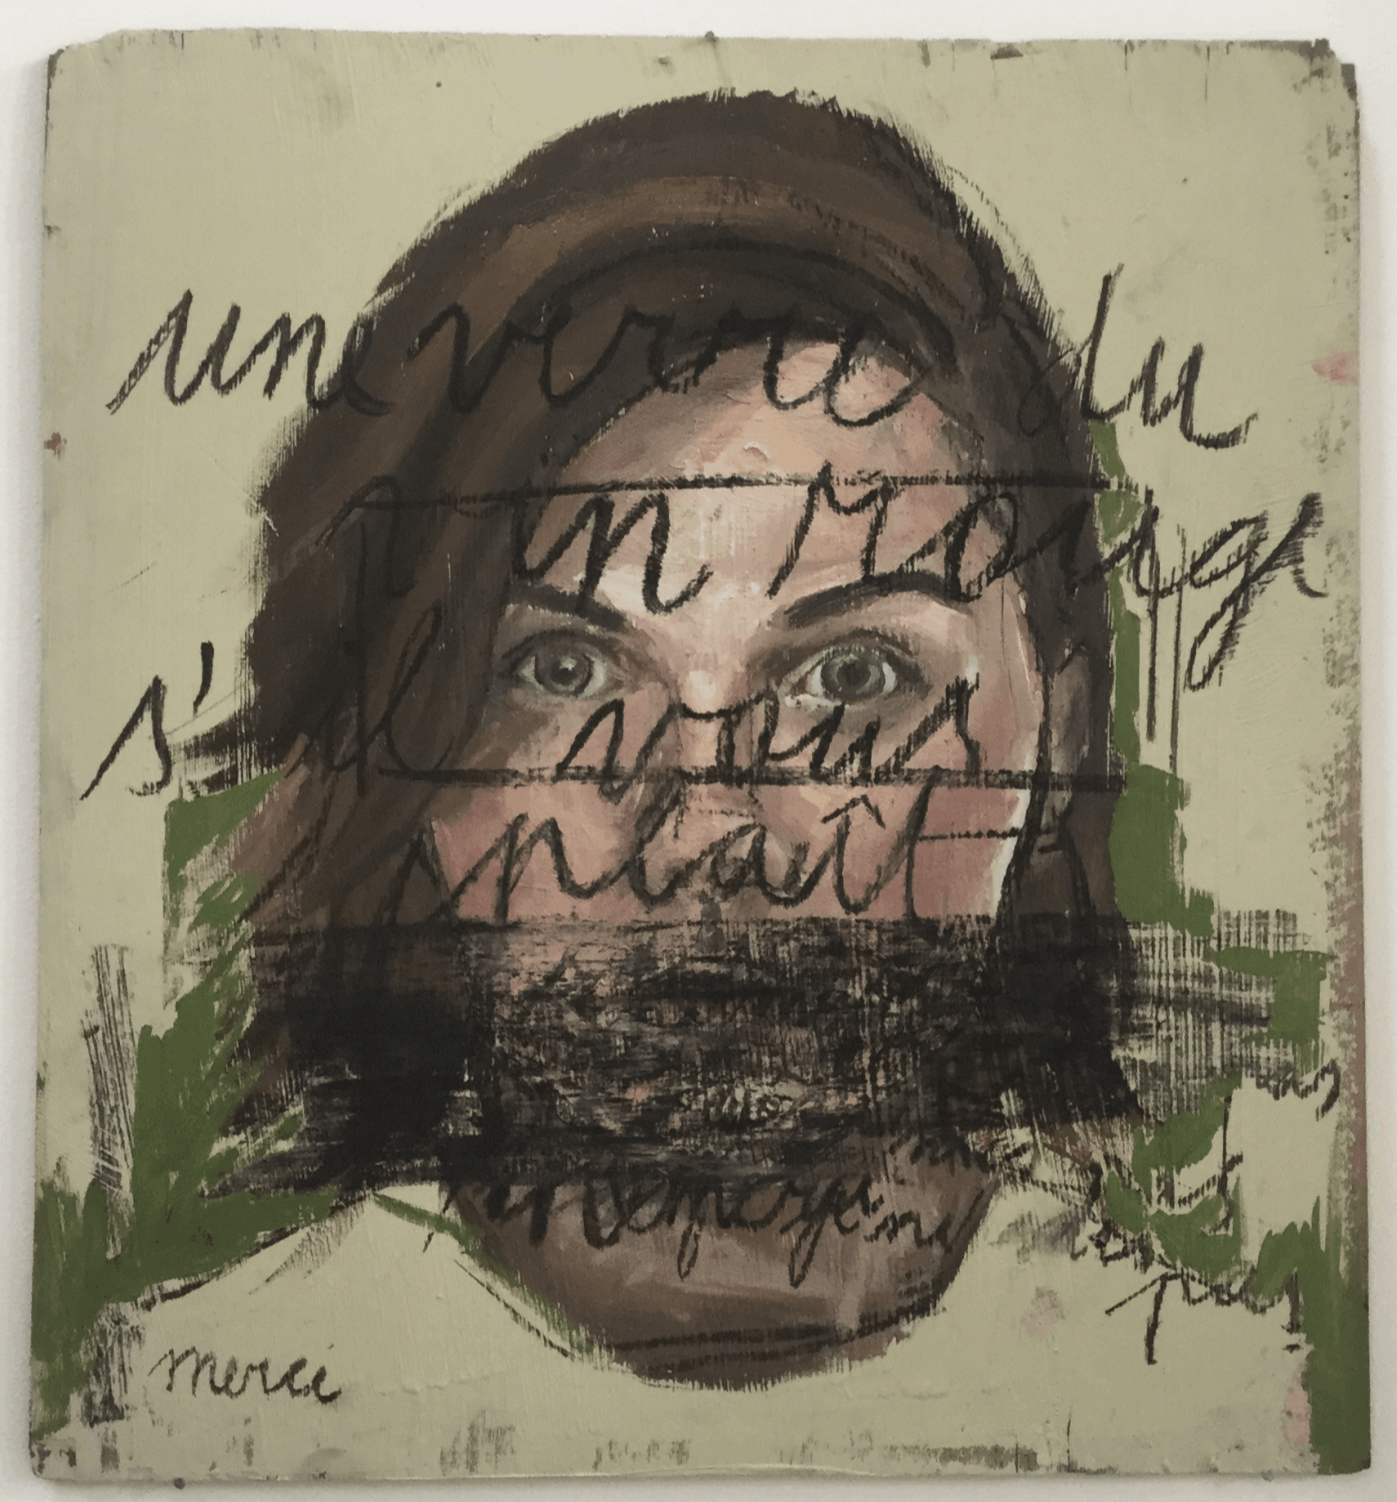 une verre du
vin rouge
s'il vous
plaît
merci